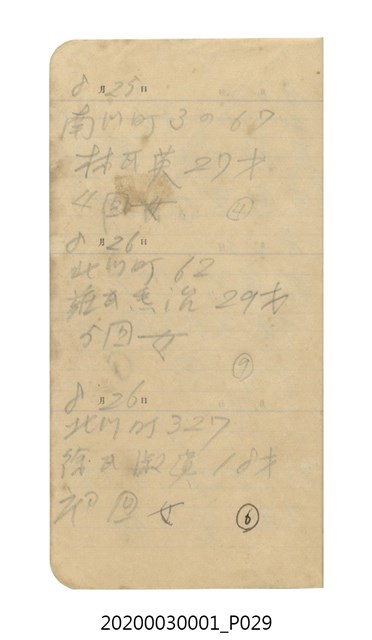 8月25日
南川町3の67
林氏英27才
4回女
④
8月26日
北川町62
氏 29才
5回女
⑨
8月26日
北川町327
徐氏淑貞18才
初回女
⑥
20200030001_P029